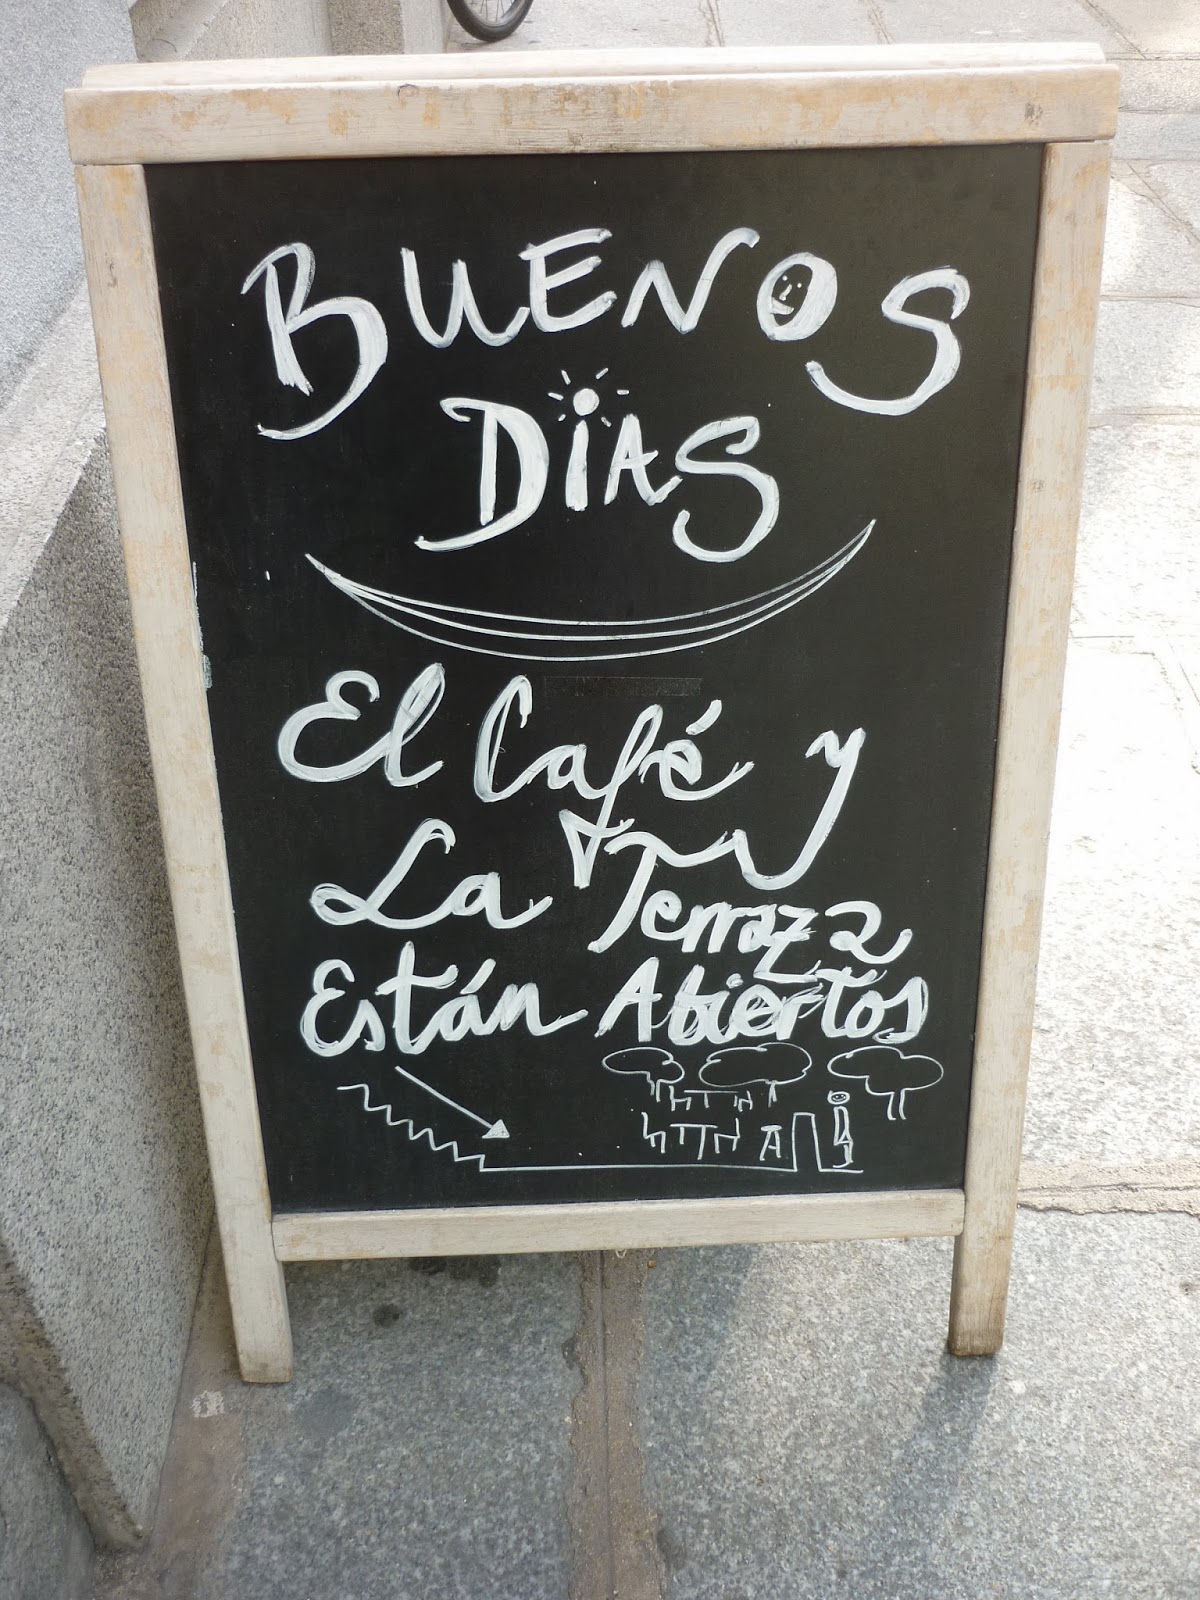 BUENOS
DiAS
El Café y
La Terraza
Están Abiertos